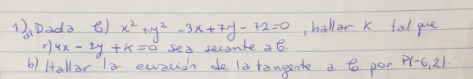 1) a) Dada C) x² + y² - 3x + 7y - 72 = 0, hallar k tal que
r) 4x - 2y + k = 0 sea secante a C.
b) Hallar la ecuación de la tangente a C por P(-6,2).